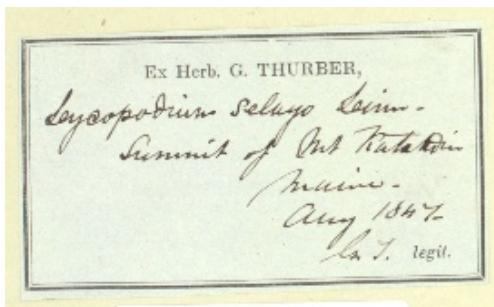 Ex Herb. G. THURBER,
Lycopodium Selago Linn-
Summit of Mt Katahdin
Maine-
Aug 1847-
G. T. legit.